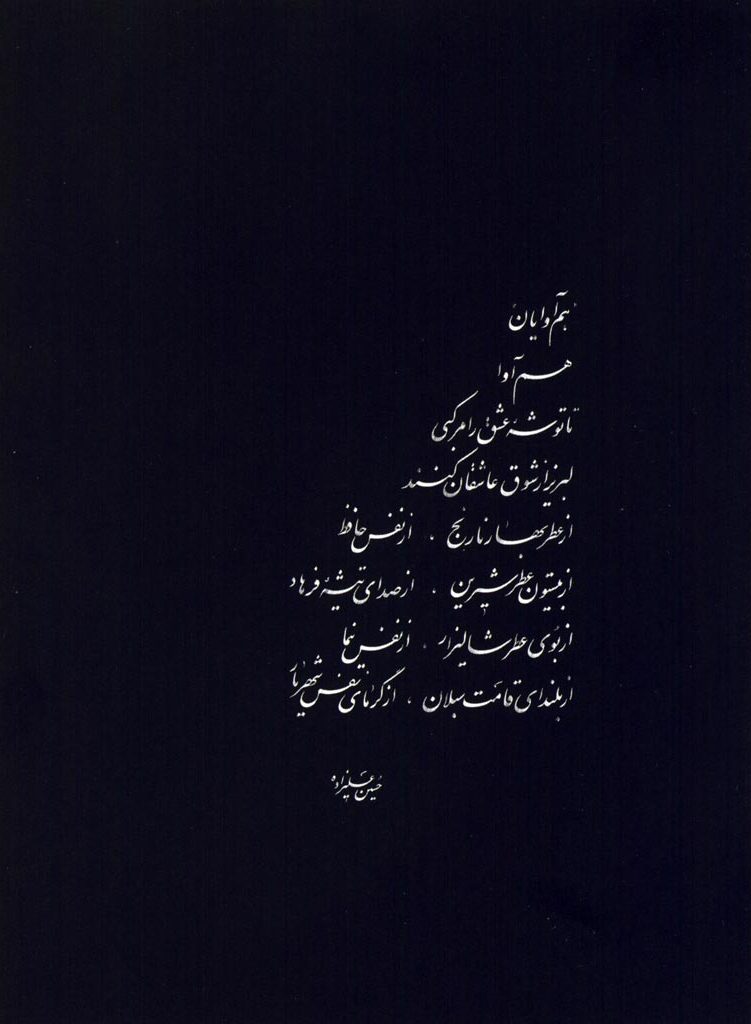 هم‌آوایان
هم‌آوا
تا توشهٔ عشق را مرکبی
لبریز از شوق عاشقان کنند
از عطر بهار نارنج ، از نفس حافظ
از بیستون عطر شیرین ، از صدای تیشهٔ فرهاد
از بوی عطر شالیزار ، از نفس نیما
از بلندای قامت سبلان ، از گرمای نفس شهریار
حسین علیزاده